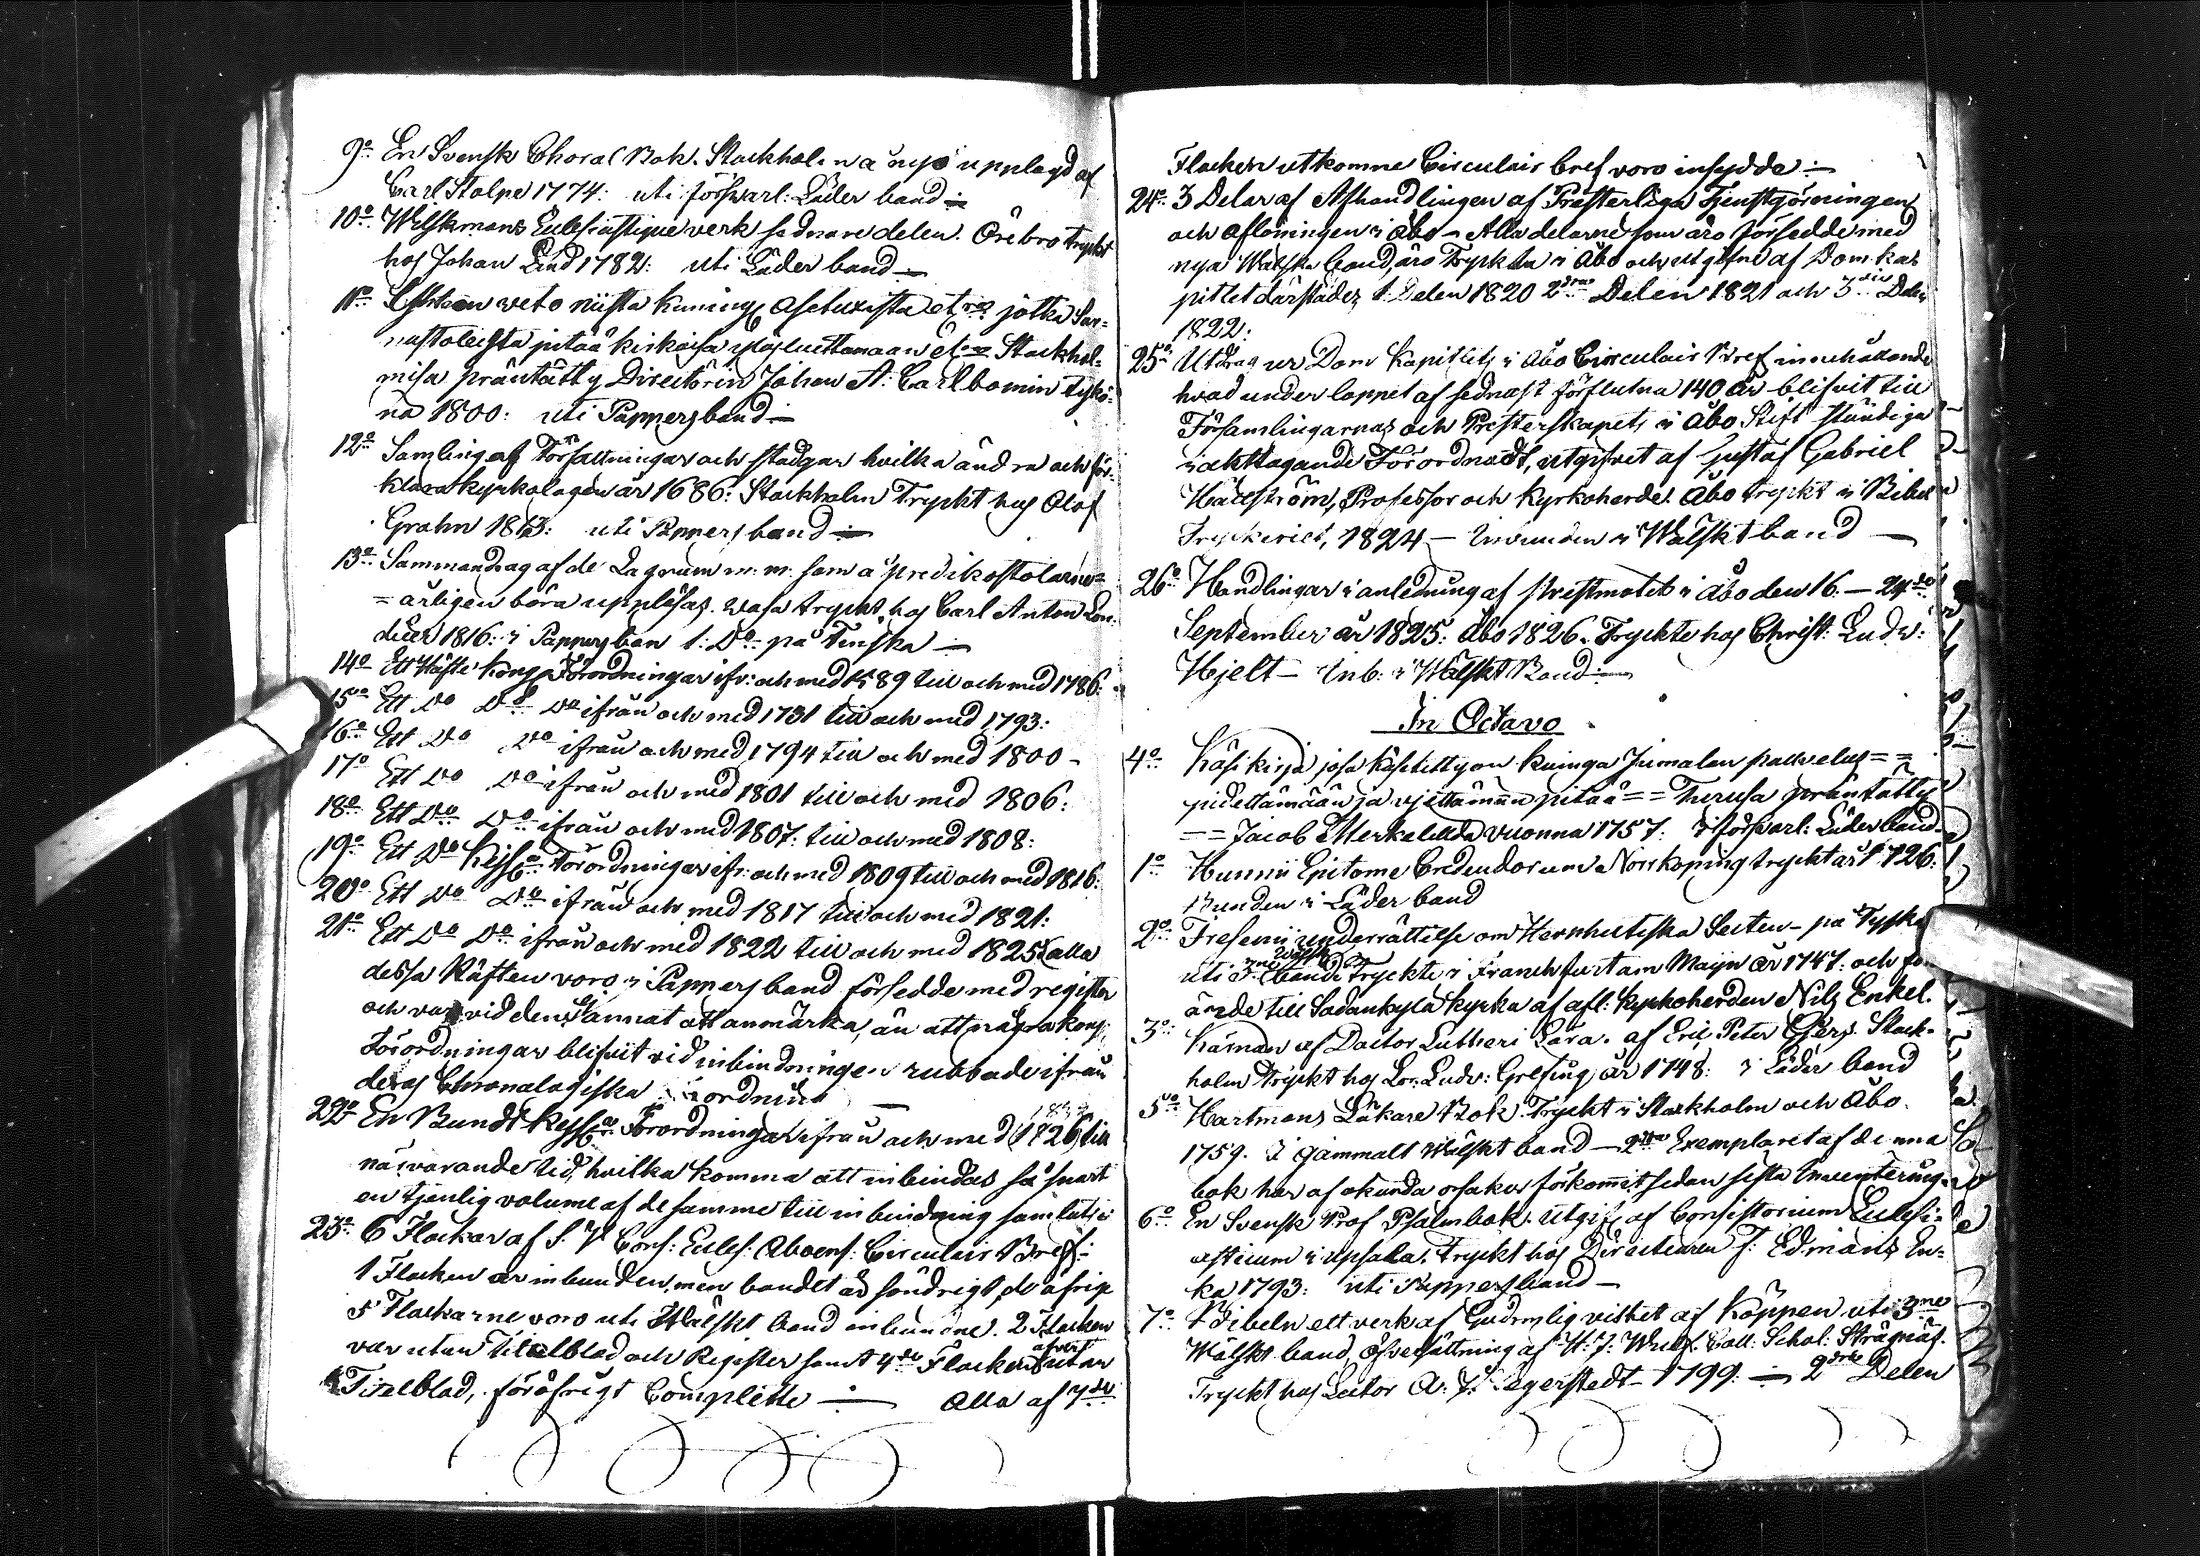 9:o En Svensk Choral Bok. Stockholm å nyo upplagd af
Carl Stolpe 1774: uti förswarl: Läder band —
10:o Wilskmans Eclesiastique verk sednare delen. Örebro tryckt
hos Johan Lind 1782: uti Läder band —
11:o weto niistä Kuning: Asetuxista etc. jotka Saar-
nastoleista pitää kirkoisa ylösluettamaan etc. Stockhol-
misa präntätty Directörin Johan A: Carlbomin tykö-
nä 1800: uti Pappersband —
12:o Samling af Författningar och stadgar hvilka ändra och för-
klara kyrkolagen år 1686: Stockholm Tryckt hos Olof
Grahn 1813: uti Pappersband —
13:o Sammandrag af de Lagrum m: m: som å predikostolarne
= årligen böra uppläsas. Wasa tryckt hos Carl Anton Lon-
dicer 1816: i Pappersban 1: Do på Finska —
14:o Ett Häfte Kong: Förordningar ifr: och med 1689 till och med 1786:
15:o Ett Do Do Do ifrån och med 1731 till och med 1793:
16:o Ett Do Do ifrån och med 1794 till och med 1800 -
17:o Ett Do Do ifrån och med 1801 till och med 1806:
18:o Ett Do Do ifrån och med 1807: till och med 1808:
19:o Ett Do Kejs: Förordningar ifr: och med 1809 till och med 1816:
20:o Ett Do Do ifrån och med 1817 till och med 1821:
21:o Ett Do Do ifrån och med 1822 till och med 1825 (alla
dessa Häften voro i Pappers band försedde med register
och var vid dem annat att anmärka, än att några kong:
Förordningar blifvit vid inbindningen rubbade ifrån
deras Chronologiska ordning —
22:o En Bundt Kejs: Förordningar ifrån och med 1826 till
närvarande tid, hvilka komma att inbindas så snart
en tjenlig volume af de samme till inbindning samlats:
23:o 6 Flockar af S: V: Cons: Eccles: Aboens: Circulair Bref:
1 Flocken är inbunden, men bandet är söndrigt, de öfrige
5 Flockarne voro uti Wälskt band inbundne. 2 Flocken
var utan Titelblad och Register samt 4:de Flocken äfven utan
Titelblad, föröfrigt Complette — Alla af 7:de
Flocken utkomne Circulair bref voro insydde —
24:o 3 Delar af Afhandlingen af Presterliga Tjenstgöringen
och aflöningen i Åbo - Alla delarne som äro försedde med
nya Wälska band, äro Tryckta i Åbo och utgifne af Domka-
pitlet därstädes 1: Delen 1820 2:dra Delen 1821 och 3:die Delen
1822:
25:o Utdrag ur Dom Kapitlets i Åbo Circulair Bref innehållande
hvad under loppet af sednast förflutna 140 år blifvit till
Församlingarnas och Presterskapets i Åbo Stift ständiga
iakttagande Förordnadt, utgifvet af Gustaf Gabriel
Hällström, Professor och Kyrkoherde. Åbo tryckt i Bibel
Tryckeriet, 1824 — Inbunden i Wälskt band —
26:o Handlingar i anledning af Prestmötet i Åbo den 16 — 24:de
September år 1825: Åbo 1826. Tryckte hos Christ: Ludv:
Hjelt — Inb: i Wälskt Band —
In Octavo
4:o Käsikirja josa käsitetty on kuinga Jumalan palvelus = =
pidettämän ja pitää = = Turusa präntätty
= = Jacob Merkeldä vuonna 1757: i förswarl: Läderband
1:o Hunnii Epitome Credendorum Norrköping tryckt år 1726:
Bunden i Läder band
2:o Fresenii underrättelse om Hernhutiska Secten - på Tyska
uti 3:ne Wälska band Tryckte i Franckfurt am Mayn år 1747: och
ärade till Sodankylä kyrka af afl: Kyrkoherden Nils Enkel.
3:o Kärnan af Doctor Lutheri Lära. af Eric Peter Stock-
holm Tryckt hos Lor: Ludv: Grefing år 1748: i Läder band
5:o Hartmans Läkare Bok. Tryckt i Stockholm och Åbo.
1759. I gammalt Wälskt band — 2:dra Exemplaret af denna
bok har af okända orsaker förkommit sedan sista Inventering.
6:o En Svensk Prof Psalmbok. Utgif: af Consistorium Ecclesi-
asticum i Upsala. Tryckt hos Directeuren J: Edmans En-
ka 1793: uti Pappersband —
7:o Bibeln ett verk af Gudomlig vishet af Köppen uti 3:ne
Wälskt band, öfversättning af Coll: Schol: Strägnäs.
Tryckt hos Lector A: J: Segerstedt 1799: — 2:dra Delen